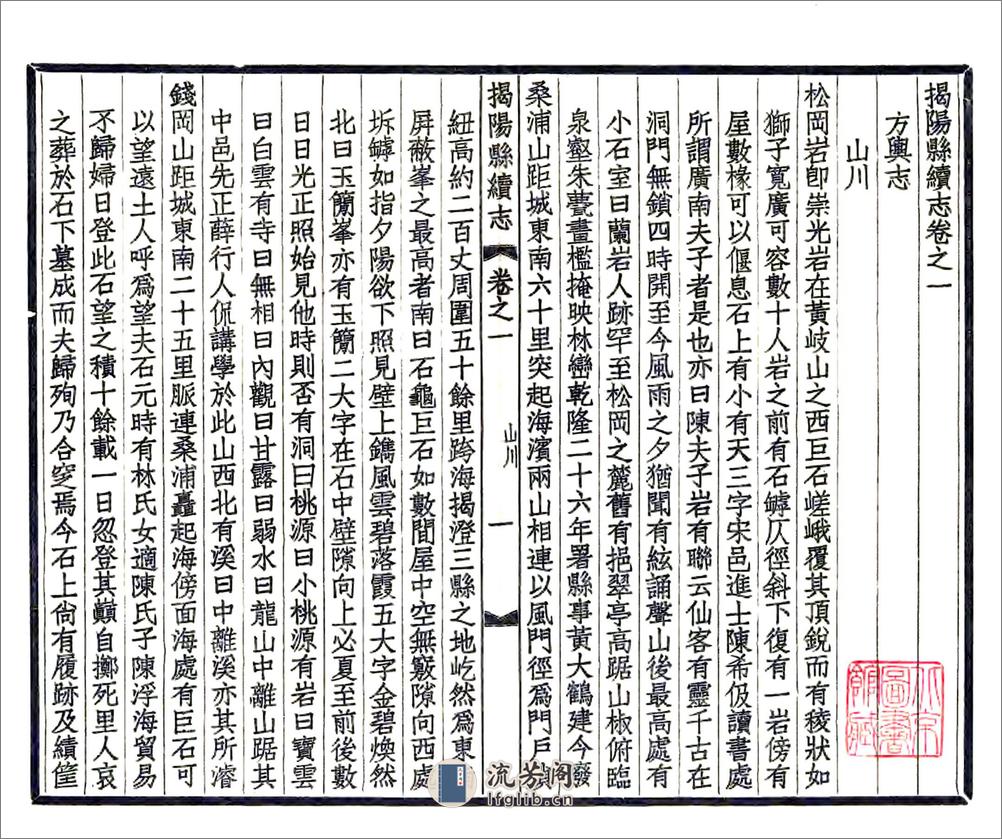 揭陽縣續志卷之一
方輿志
山川
松岡岩卽崇光岩在黃岐山之西巨石嵯峨覆其頂銳而有稜狀如
獅子寬廣可容數十人岩之前有石罅仄徑斜下復有一岩傍有
屋數椽可以偃息石上有小有天三字宋邑進士陳希伋讀書處
所謂廣南夫子者是也亦曰陳夫子岩有聯云仙客有靈千古在
洞門無鎖四時開至今風雨之夕猶聞有絃誦聲山後最高處有
小石室曰蘭岩人跡罕至松岡之麓舊有挹翠亭高踞山椒俯臨
泉壑朱甍畫檻掩映林巒乾隆二十六年署縣事黃大鶴建今廢
桑浦山距城東南六十里突起海濱兩山相連以風門徑爲門戶
揭陽縣續志 卷之一 山川 一
紐高約二百丈周圍五十餘里跨海揭澄三縣之地屹然爲東
屏蔽峯之最高者南曰石龜巨石如數間屋中空無竅隙向西處
坼罅如指夕陽欲下照見壁上鐫風雲碧落霞五大字金碧煥然
北曰玉簡峯亦有玉簡二大字在石中壁隙向上必夏至前後數
日日光正照始見他時則否有洞曰桃源曰小桃源有岩曰寶雲
曰白雲有寺曰無相曰內觀曰甘露曰弱水曰龍山中離山踞其
中邑先正薛行人侃講學於此山西北有溪曰中離溪亦其所濬
錢岡山距城東南二十五里脈連桑浦矗起海傍面海處有巨石可
以望遠土人呼爲望夫石元時有林氏女適陳氏子陳浮海貿易
不歸婦日登此石望之積十餘載一日忽登其巔自擲死里人哀
之葬於石下墓成而夫歸殉乃合窆焉今石上尙有履跡及績筐
北京
圖書
館藏
流芳阁
lfglib.cn